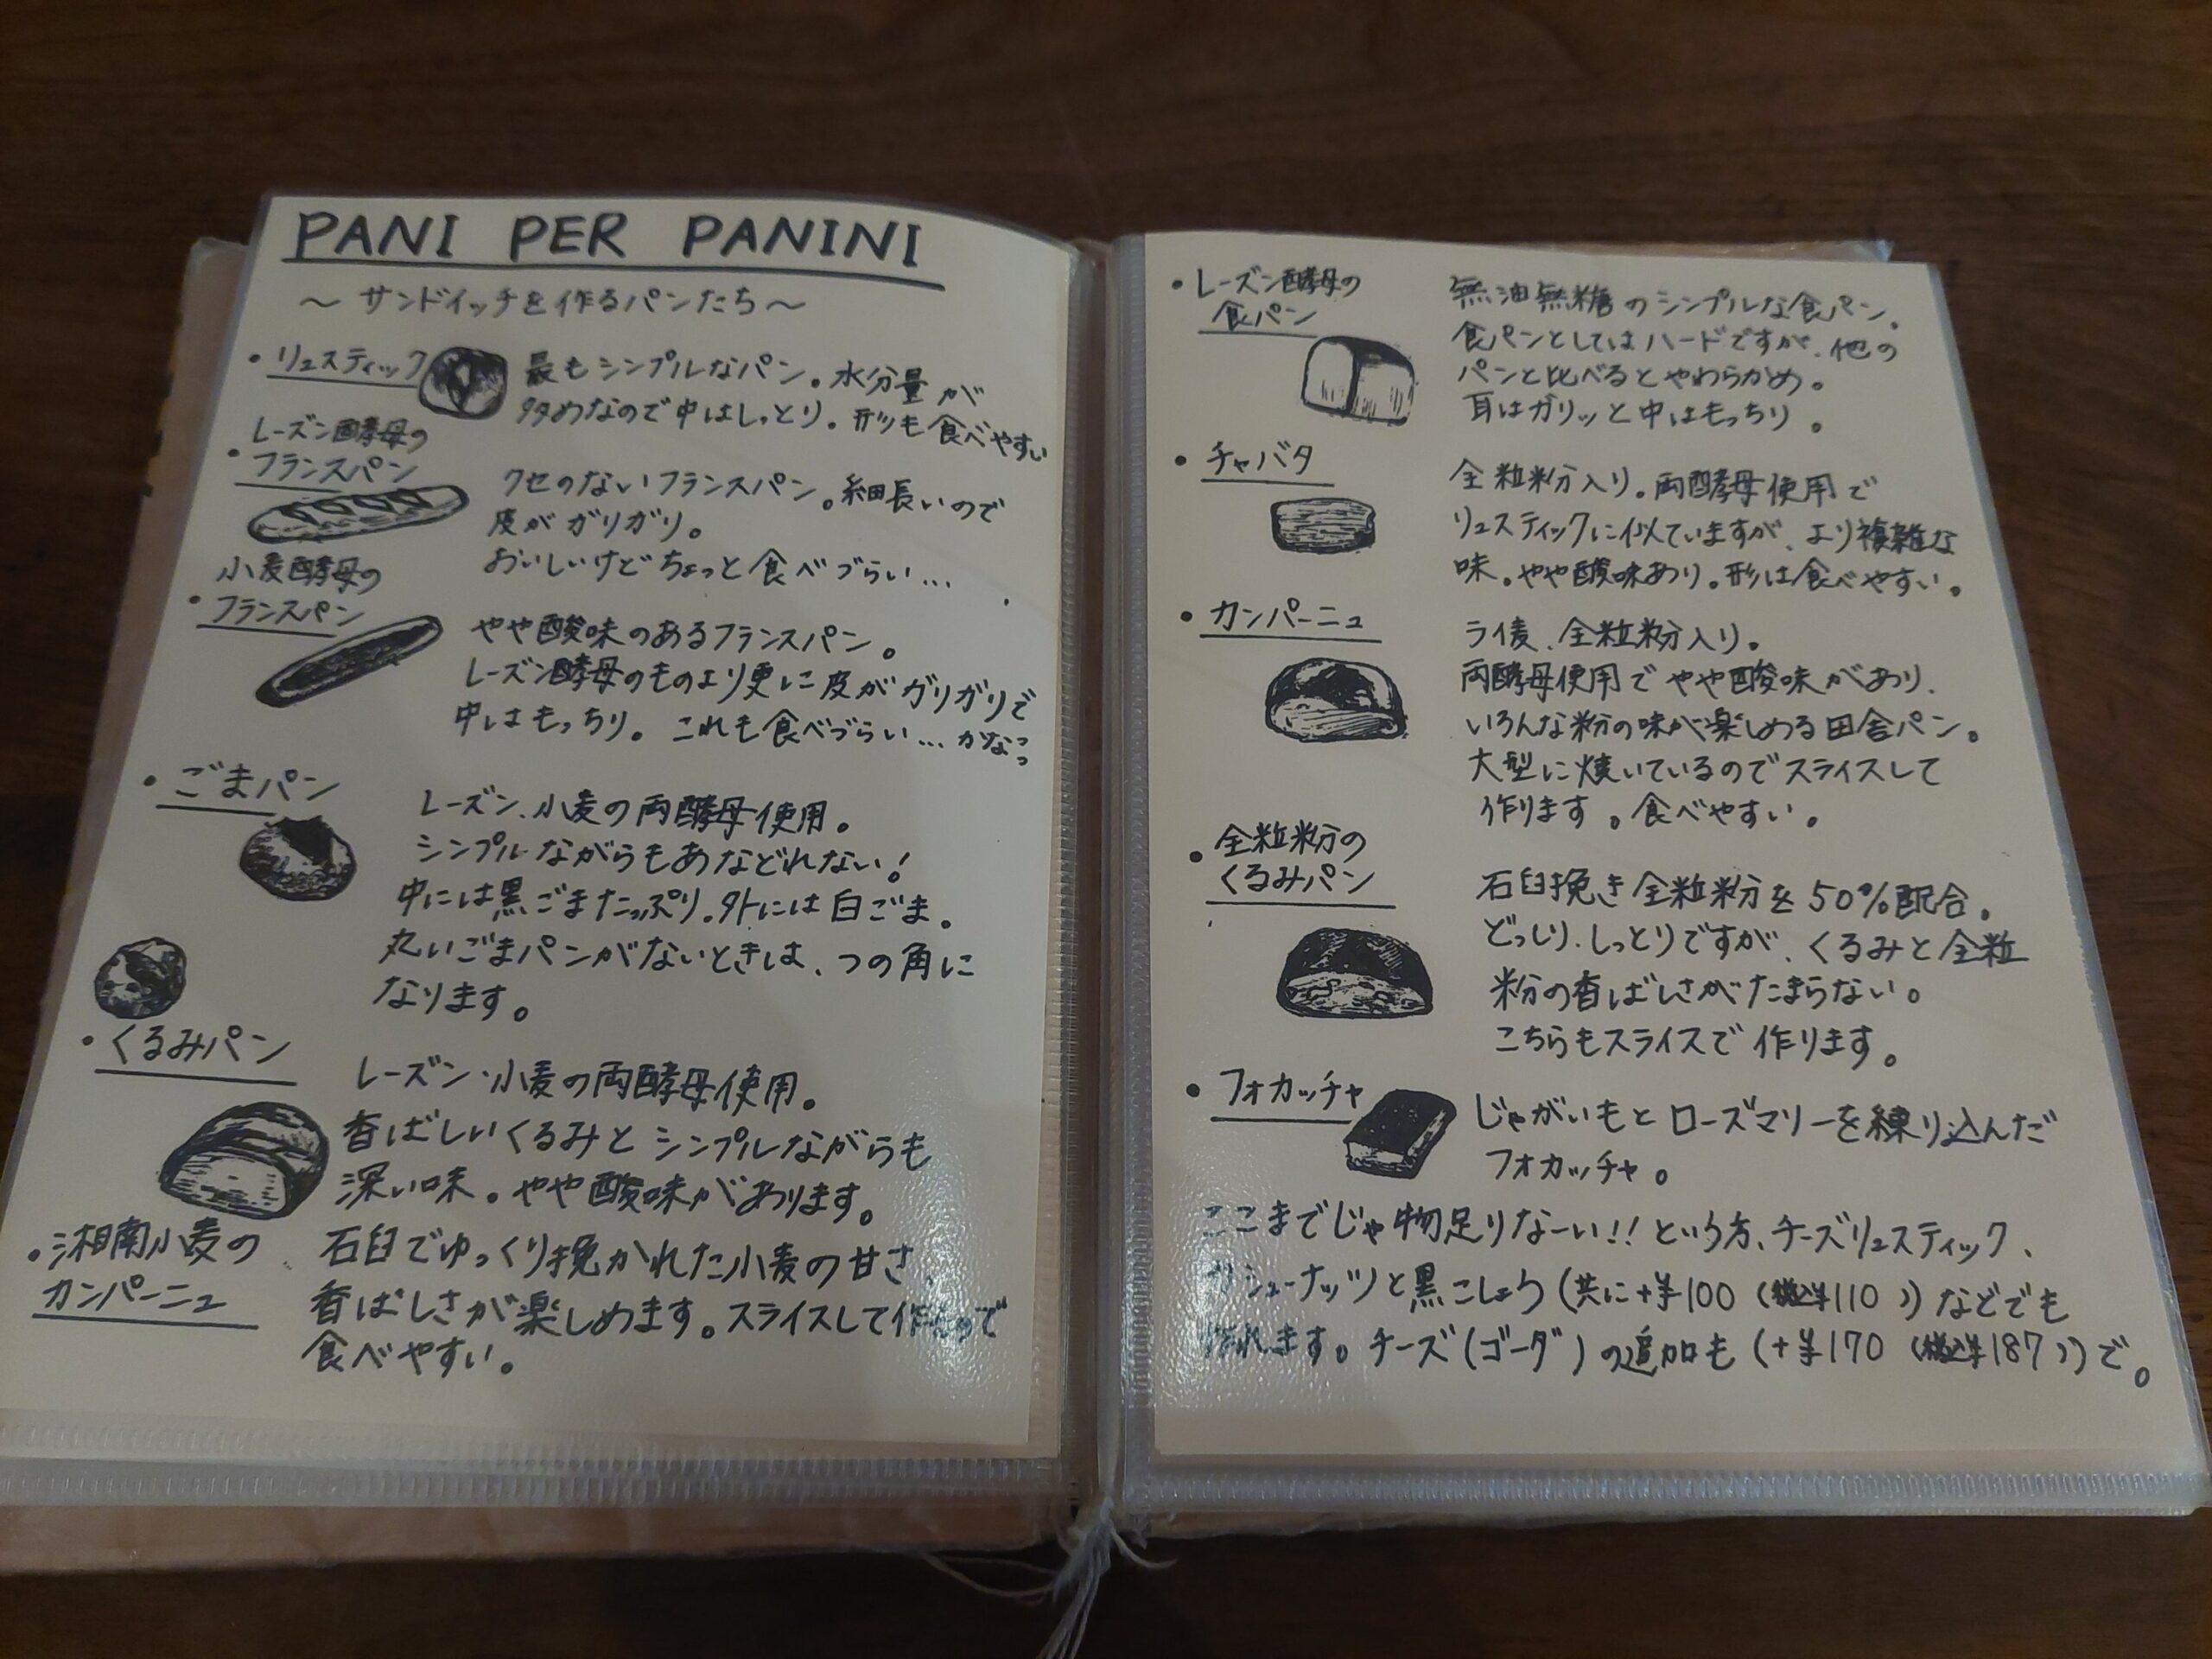 PANI PER PANINI
〜 サンドイッチを作るパンたち 〜
・リュスティック
最もシンプルなパン。水分量が
多めなので中はしっとり。形も食べやすい
レーズン酵母の
・フランスパン
クセのないフランスパン。細長いので
皮がガリガリ。
おいしいけどちょっと食べづらい…
小麦酵母の
・フランスパン
やや酸味のあるフランスパン。
レーズン酵母のものより更に皮がガリガリで
中はもっちり。これも食べづらい…かな
・ごまパン
レーズン、小麦の両酵母使用。
シンプルながらもあなどれない!
中には黒ごまたっぷり。外には白ごま。
丸いごまパンがないときは、つの角に
なります。
・くるみパン
レーズン・小麦の両酵母使用。
香ばしいくるみとシンプルながらも
深い味。やや酸味があります。
・湘南小麦の
カンパーニュ
石臼でゆっくり挽かれた小麦の甘さ、
香ばしさが楽しめます。スライスして作るので
食べやすい。
・レーズン酵母の
食パン
無油無糖のシンプルな食パン。
食パンとしてはハードですが、他の
パンと比べるとやわらかめ。
耳はガリッと中はもっちり。
・チャバタ
全粒粉入り。両酵母使用で
リュスティックに似ていますが、より複雑な
味。やや酸味あり。形は食べやすい。
・カンパーニュ
ライ麦、全粒粉入り。
両酵母使用でやや酸味があり、
いろんな粉の味が楽しめる田舎パン。
大型に焼いているのでスライスして
作ります。食べやすい。
・全粒粉の
くるみパン
石臼挽き全粒粉を50%配合。
どっしり、しっとりですが、くるみと全粒
粉の香ばしさがたまらない。
こちらもスライスで作ります。
・フォカッチャ
じゃがいもとローズマリーを練り込んだ
フォカッチャ。
ここまでじゃ物足りなーい!! という方、チーズリュスティック、
カシューナッツと黒こしょう(共に+¥100(税込¥110))などでも
作れます。チーズ(ゴーダ)の追加も(+¥170(税込¥187))で。